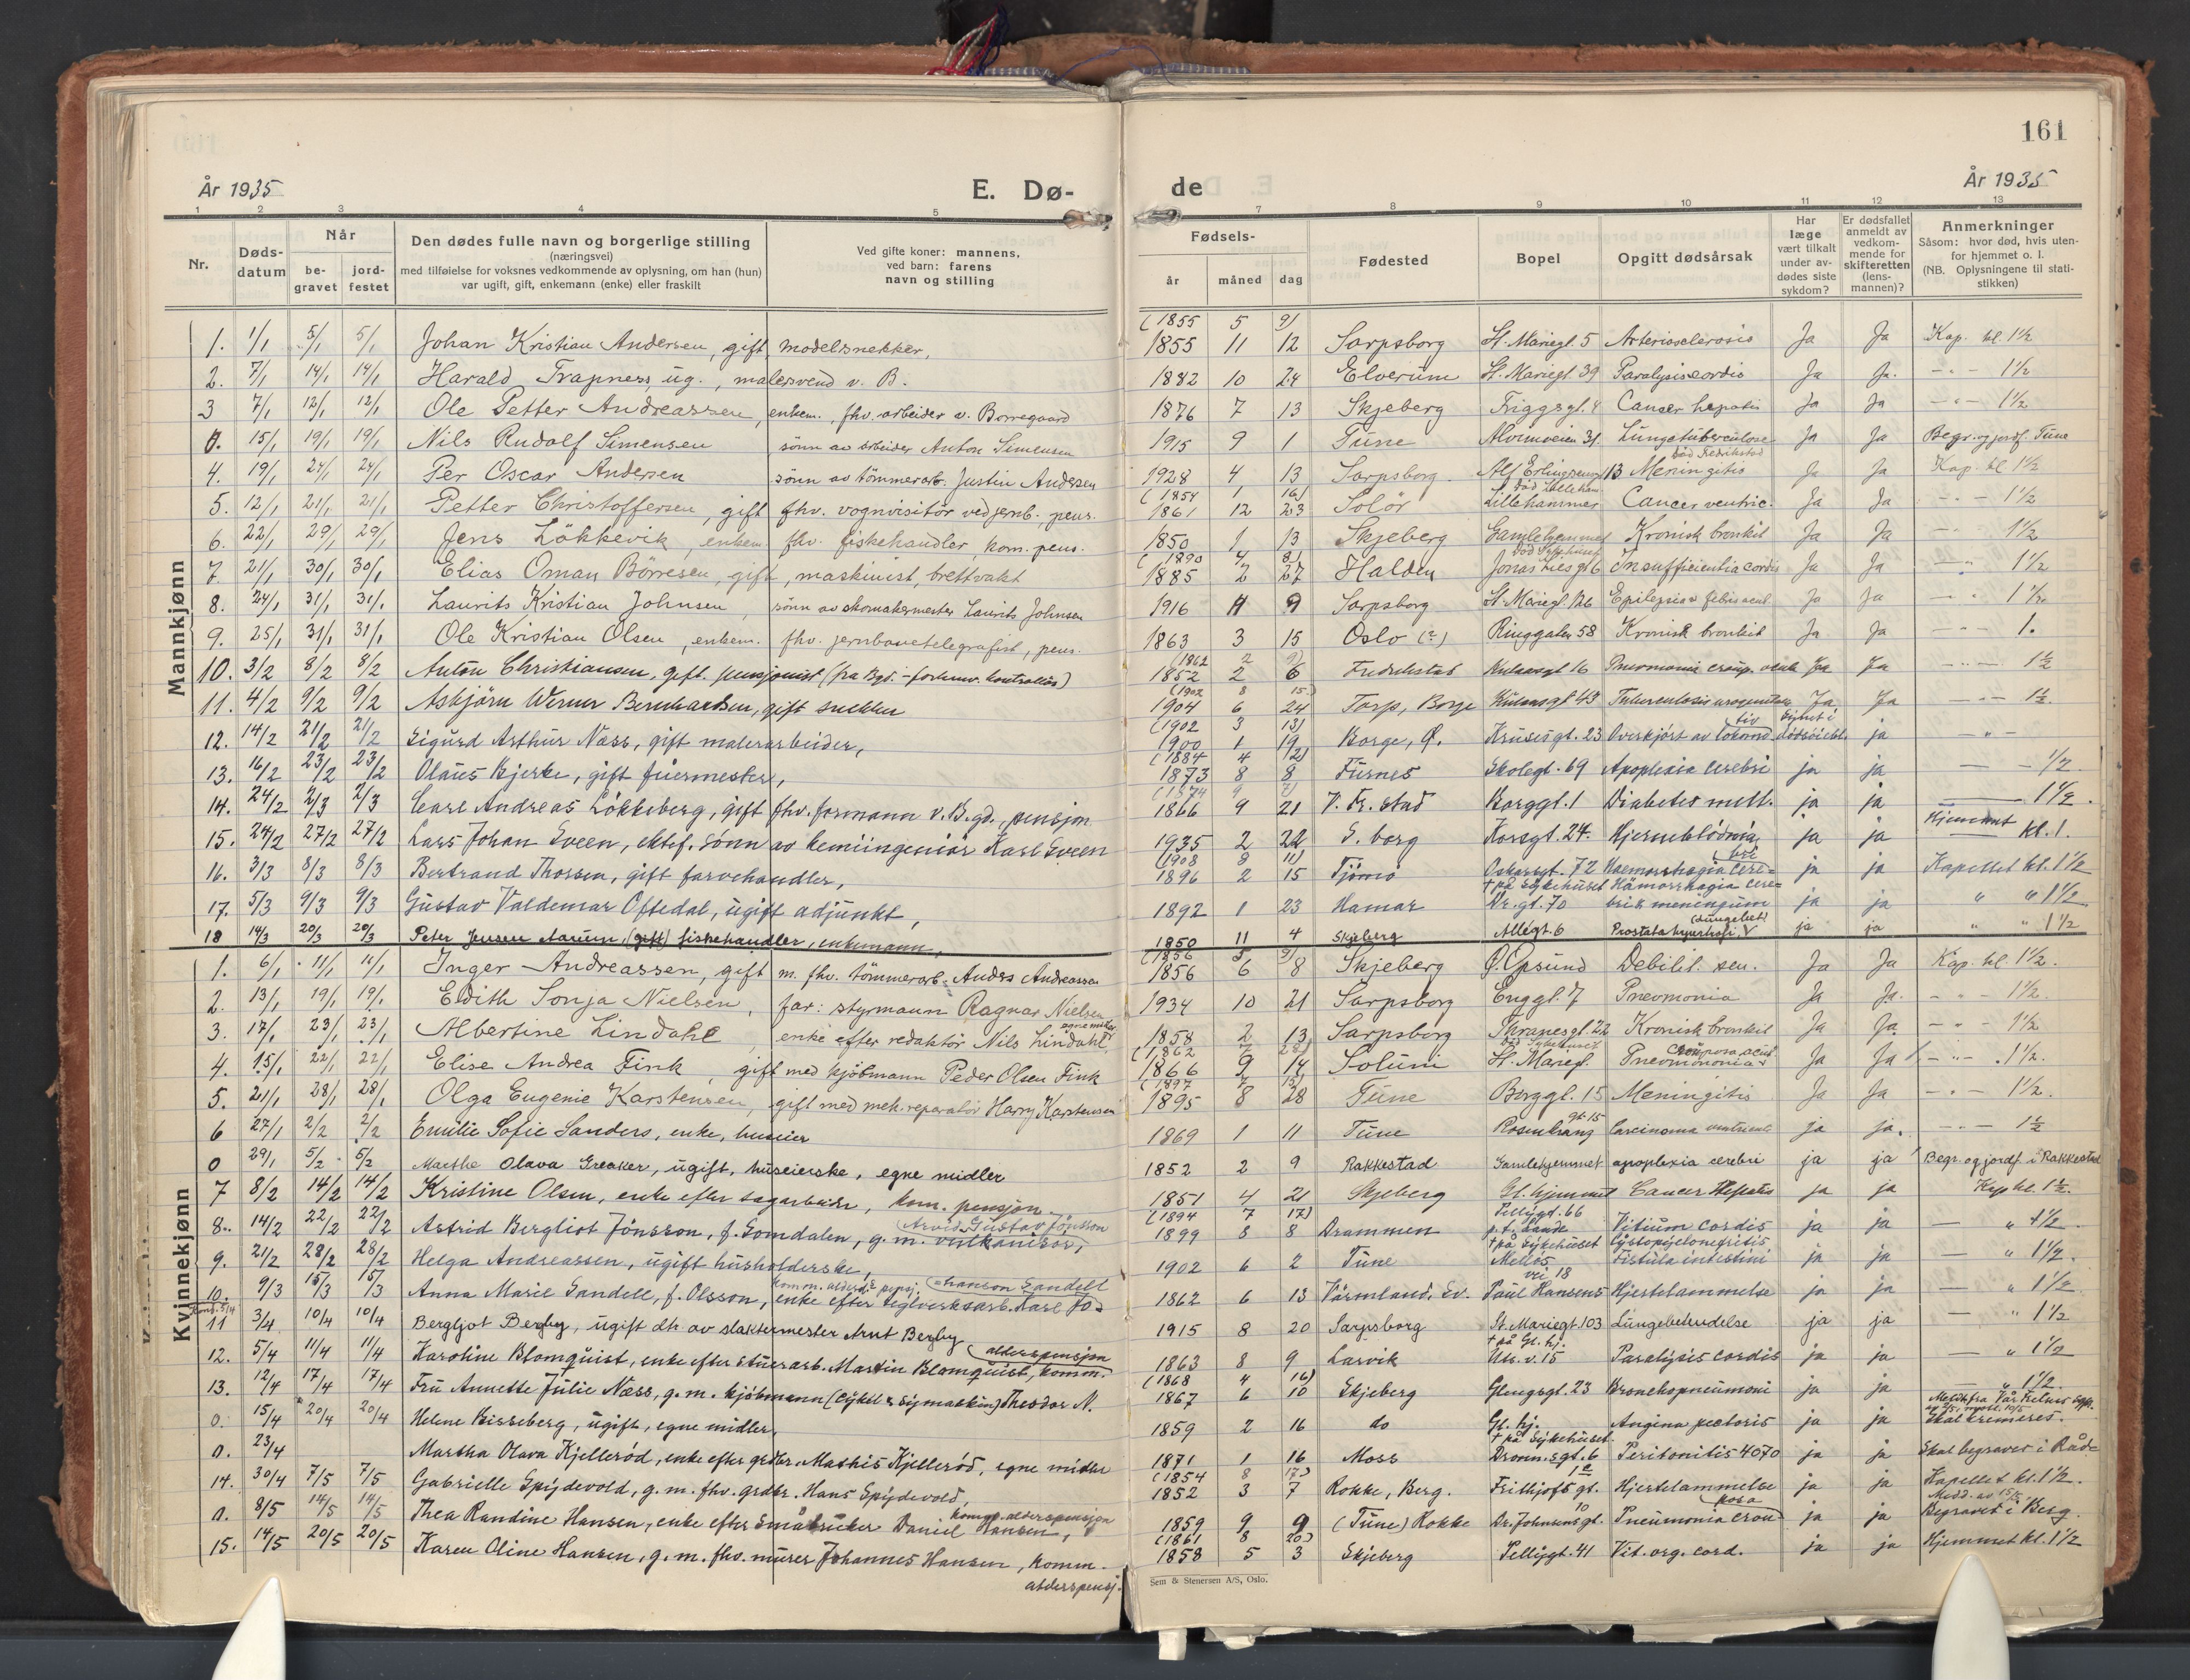 161
År 1935 E. Dø- de År 1935
1 2 3 4 5 7 8 9 10 11 12 13
Nr. Døds-datum Når be-gravet jord-festet Den dødes fulle navn og borgerlige stilling (næringsvei) med tilføielse for voksnes vedkommende av oplysning, om han (hun) var ugift, gift, enkemann (enke) eller fraskilt Ved gifte koner: mannens, ved barn: farens navn og stilling Fødsels- år måned dag Fødested Bopel Opgitt dødsårsak Har læge vært tilkalt under av-dødes siste sykdom? Er dødsfallet anmeldt av vedkom-mende for skifteretten (lens-mannen)? Anmerkninger Såsom: hvor død, hvis uten-for hjemmet o. l. (NB. Oplysningene til stati-stikken)
Mannkjønn
(1855 5 9)
1. 1/1 5/1 5/1 Johan Kristian Andersen, gift modelsnekker, 1855 11 12 Sarpsborg St. Mariegt. 5 Arteriosclerosis Ja Ja Kap. kl. 1½
2. 7/1 14/1 14/1 Harald Trapness, ug., malersvend v. B. 1882 10 24 Elverum St. Mariegt. 39 Paralysis cordis Ja Ja. - " - 1½
3 7/1 12/1 12/1 Ole Petter Andreassen, enkem. fhv. arbeider v. Borregaard 1876 7 13 Skjeberg Triggsgt. 4 Cancer hepatis Ja Ja - " - 1½
0. 15/1 19/1 19/1 Nils Rudolf Simensen sönn av arbeider Anton Simensen 1915 9 1 Tune Alvimveien 31. Lungetuberculose Ja Ja Begr. og jordf. Tune
4. 19/1 24/1 24/1 Per Oscar Andersen sönn av tömmerarb. Justin Andersen 1928 4 13 Sarpsborg. Alf Erlingsensv. 13 död Fredrikstad Meningitis Ja Ja Kap. kl. 1½
(1854 1 16)
5. 12/1 21/1 21/1 Petter Christoffersen, gift fhv. vognvisitör ved jernb. pens. 1861 12 23 Solör död Lilleham. Lillehammer Cancer ventric. Ja Ja - " - 1½
6. 22/1 29/1 29/1 Jens Lökkevik, enkem fhv. fiskehandler, kom. pens. 1850 1 13 Skjeberg Gamlehjemmet Kronisk bronkit Ja Ja - " 1½
(1890 4 8)
7. 21/1 30/1 30/1 Elias Oman Börresen, gift, maskinist, brettvakt 1885 2 27 Halden död Sykehuset Jonas Liesgt 6 Insufficientia cordis Ja Ja - " 1½
8. 24/1 31/1 31/1 Laurits Kristian Johnsen, sönn av skomakermester Laurits Johnsen 1916 11 9 Sarpsborg St. Mariegt. 126 Ja Ja - " 1½
9. 25/1 31/1 31/1 Ole Kristian Olsen, enkem. fhv. jernbanetelegrafist, pens. 1863 3 15 Oslo (?) Ringgaten 58 Kronisk bronkit Ja Ja - " - 1.
1862 2 9)
10. 3/2 8/2 8/2 Anton Christiansen, gift. pensjonist (fra Bgd. - forhenv. kontrollör) 1852 2 6 Fredrikstad Kulaasgt 16 Pneumonia croup. Ja Ja - " - 1½
(1902 8 15)
11. 4/2 9/2 9/2 Asbjörn Werner Bernhardsen, gift snekker 1904 6 24 Torp, Borge Kulaasgt 43 Tuberculosis Ja Ja - " - 1½.
(1902 3 13)
12. 14/2 21/2 21/2 Sigurd Arthur Næss, gift malerarbeider, 1900 1 19 Borge, Ø. Krusesgt. 23 Overkjört av lokomotiv Synet i dödsöiebl. ja - " -
(1884 4 12)
13. 16/2 23/2 23/2 Olaus Bjerke, gift fuermester, 1873 8 8 Furnes Skolegt. 69 Apoplexia cerebri ja ja — - ½
(1874 9 7)
14. 24/2 2/3 2/3 Carl Andreas Lökkeberg, gift fhv. formann v. B.gd., pensjon 1866 9 21 V. Fr. stad Borggt. 1 Diabetes mell. ja ja — 1½.
15. 24/2 27/2 27/2 Lars Johan Sveen, ektef. sönn av kemiingeniör Karl Sveen 1935 2 22 S. borg Korsgt. 24. Hjerneblödning ja ja Hjemmet kl. 1.
(1908 8 11)
16. 3/3 8/3 8/3 Bertrand Thorsen, gift farvehandler, 1896 2 15 Tjömö Oskarsgt. 72 Haemorrhagia cerebri ja ja Kapellet kl. 1½
17. 5/3 9/3 9/3 Gustav Valdemar Oftedal, ugift adjunkt, 1892 1 23 Hamar + på sykehuset Dr. gt. 70 Hämorrhagia cerebri & meningum ja ja " " 1½
18 14/3 20/3 20/3 Peter Jensen Aarum, (gift) fiskehandler, enkemann, 1850 11 4 Skjeberg Allégt. 6 Prostatahypertrofi (Lungebet) ja ja " " 1½
Kvinnekjønn
(1856 5 9)
1. 6/1 11/1 11/1 Inger Andreassen, gift m. fhv. tömmerarb. Anders Andreassen 1856 6 8 Skjeberg Ø. Opsund Debilit. sen. Ja Ja Kap. kl. 1½.
2. 13/1 19/1 19/1 Edith Sonja Nielsen, far: styrmann Ragnar Nielsen 1934 10 21 Sarpsborg Enggt. 7 Pneomonia Ja Ja. - " - 1½
3. 17/1 23/1 23/1 Albertine Lindahl, enke efter redaktör Nils Lindahl, egne midler 1858 2 13 Sarpsborg Thranesgt. 22 Kronisk bronkit Ja Ja - " - 1½
(1862 7 28)
4. 15/1 22/1 22/1 Elise Andrea Fink, gift med kjöbmann Peder Olsen Fink 1866 9 14 Solum död Sykehuset St. Mariegt. Pneomononia crouposa acut Ja Ja - " - 1½.
(1897 7 15)
5. 21/1 28/1 28/1 Olga Eugenie Karstensen, gift med mek. reparatör Harry Karstensen 1895 8 28 Tune Borggt. 15 Meningitis Ja Ja - " - 1½.
6 27/1 2/2 2/2 Emilie Sofie Sanders, enke, huseier 1869 1 11 Tune Rosenkrang gt. 15 Carcinoma ventriculi ja ja. - " - 1½
0 29/1 5/2 5/2 Marthe Olava Greaker, ugift, huseierske, egne midler 1852 2 9 Rakkestad Gamlehjemmet apoplexia cerebri ja ja Begr. og jordf. i Rakkestad
7 8/2 14/2 14/2 Kristine Olsen, enke efter sagarbeider, kom. pensjon 1851 4 21 Skjeberg Gl. hjemmet Cancer Hepatis ja ja Kap kl. 1½.
(1894 7 17)
8. 14/2 22/2 22/2 Astrid Bergliot Jönsson, f. Gomdalen, g. m. vulkanisör, Arvid Gustav Jönsson 1899 8 8 Drammen Pellygt. 66 p. t. Sande Vitium cordis ja ja — " 1½
9. 21/2 28/2 28/2 Helga Andreassen, ugift husholderske, 1902 6 2 Tune + på Sykehuset Mellös vei 18 Cystopyelonefritis Fistula intestini ja ja — " 1½.
10. 9/3 15/3 15/3 Anna Marie Sandell, f. Olsson, enke efter teglverksarb. Karl Johanson Sandell komm. alderd. pensj. 1862 6 13 Värmland, Sv. Paul Hansens Hjertelammelse ja ja — " 1½
11 3/4 10/4 10/4 Bergljot Bergby, ugift dtr av slaktermester Arnt Bergby 1915 8 20 Sarpsborg St. Mariegt. 103 Lungebetendelse ja ja — " 1½
12. 5/4 11/4 11/4 Karoline Blomquist, enke efter stuerarb. Martin Blomquist, komm. alderspensjon 1863 8 9 Larvik + på Gl. hj. Uts. v. 15 Paralysis cordis ja ja — " 1½
(1868 4 16)
13. 12/4 17/4 17/4 Fru Annette Julie Næss, g. m. kjöbmann (Cykel & Symaskin) Theodor N. 1867 6 10 Skjeberg Glengsgt. 23 Bronchopneumoni ja ja — " 1½
0. 15/4 20/4 20/4 Helene Bisseberg, ugift, egne midler, 1859 2 16 do Gl. hj. Angina pectoris ja ja Skal kremeres.
0. 23/4 Martha Olava Kjelleröd, enke efter grdbr. Mathis Kjelleröd, egne midler 1871 1 16 Moss + på Sykehuset Dronn.sgt. 6 Peritonitis 4070 ja ja Skal begraves i Råde
(1854 8 17)
14. 30/4 7/5 7/5 Gabrielle Spydevold, g. m. fhv. grdbr. Hans Spydevold, 1852 3 7 Rokke, Berg. Frithjofs gt. Hjertelammelse ja ja Kapellet kl. 1½.
0. 8/5 14/5 14/5 Thea Randine Hansen, enke efter Småbruker Daniel Hansen, komm. alderspensjon 1859 9 9 (Tune) Rokke Dr. Johnsens gt. 10 Pneumonia crouposa ja ja Medd. av 15/5 Begravet i Berg.
(1861 8 20)
15. 14/5 20/5 20/5 Karen Oline Hansen, g. m. fhv. murer Johannes Hansen, komm. alderspensj. 1858 5 3 Skjeberg Pellygt. 41 Vit. org. cord. ja ja Hjemmet kl. 1½
Sem & Stenersen A/S, Oslo.